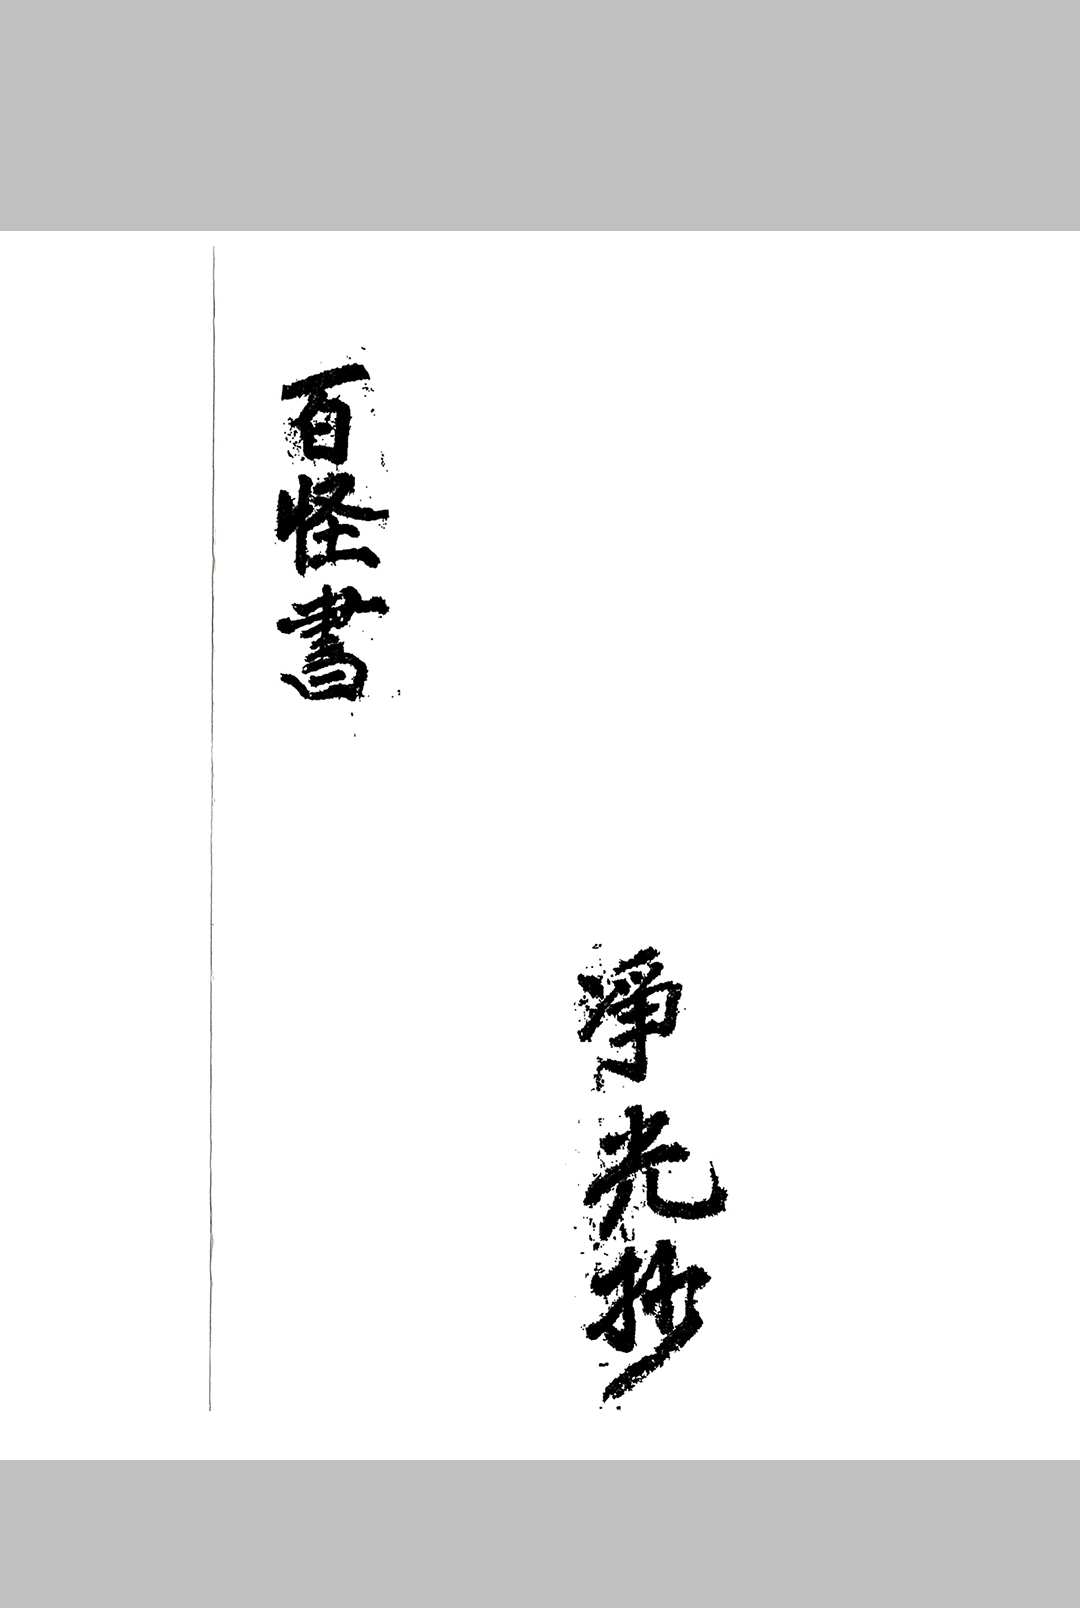 淨光抄
百怪書